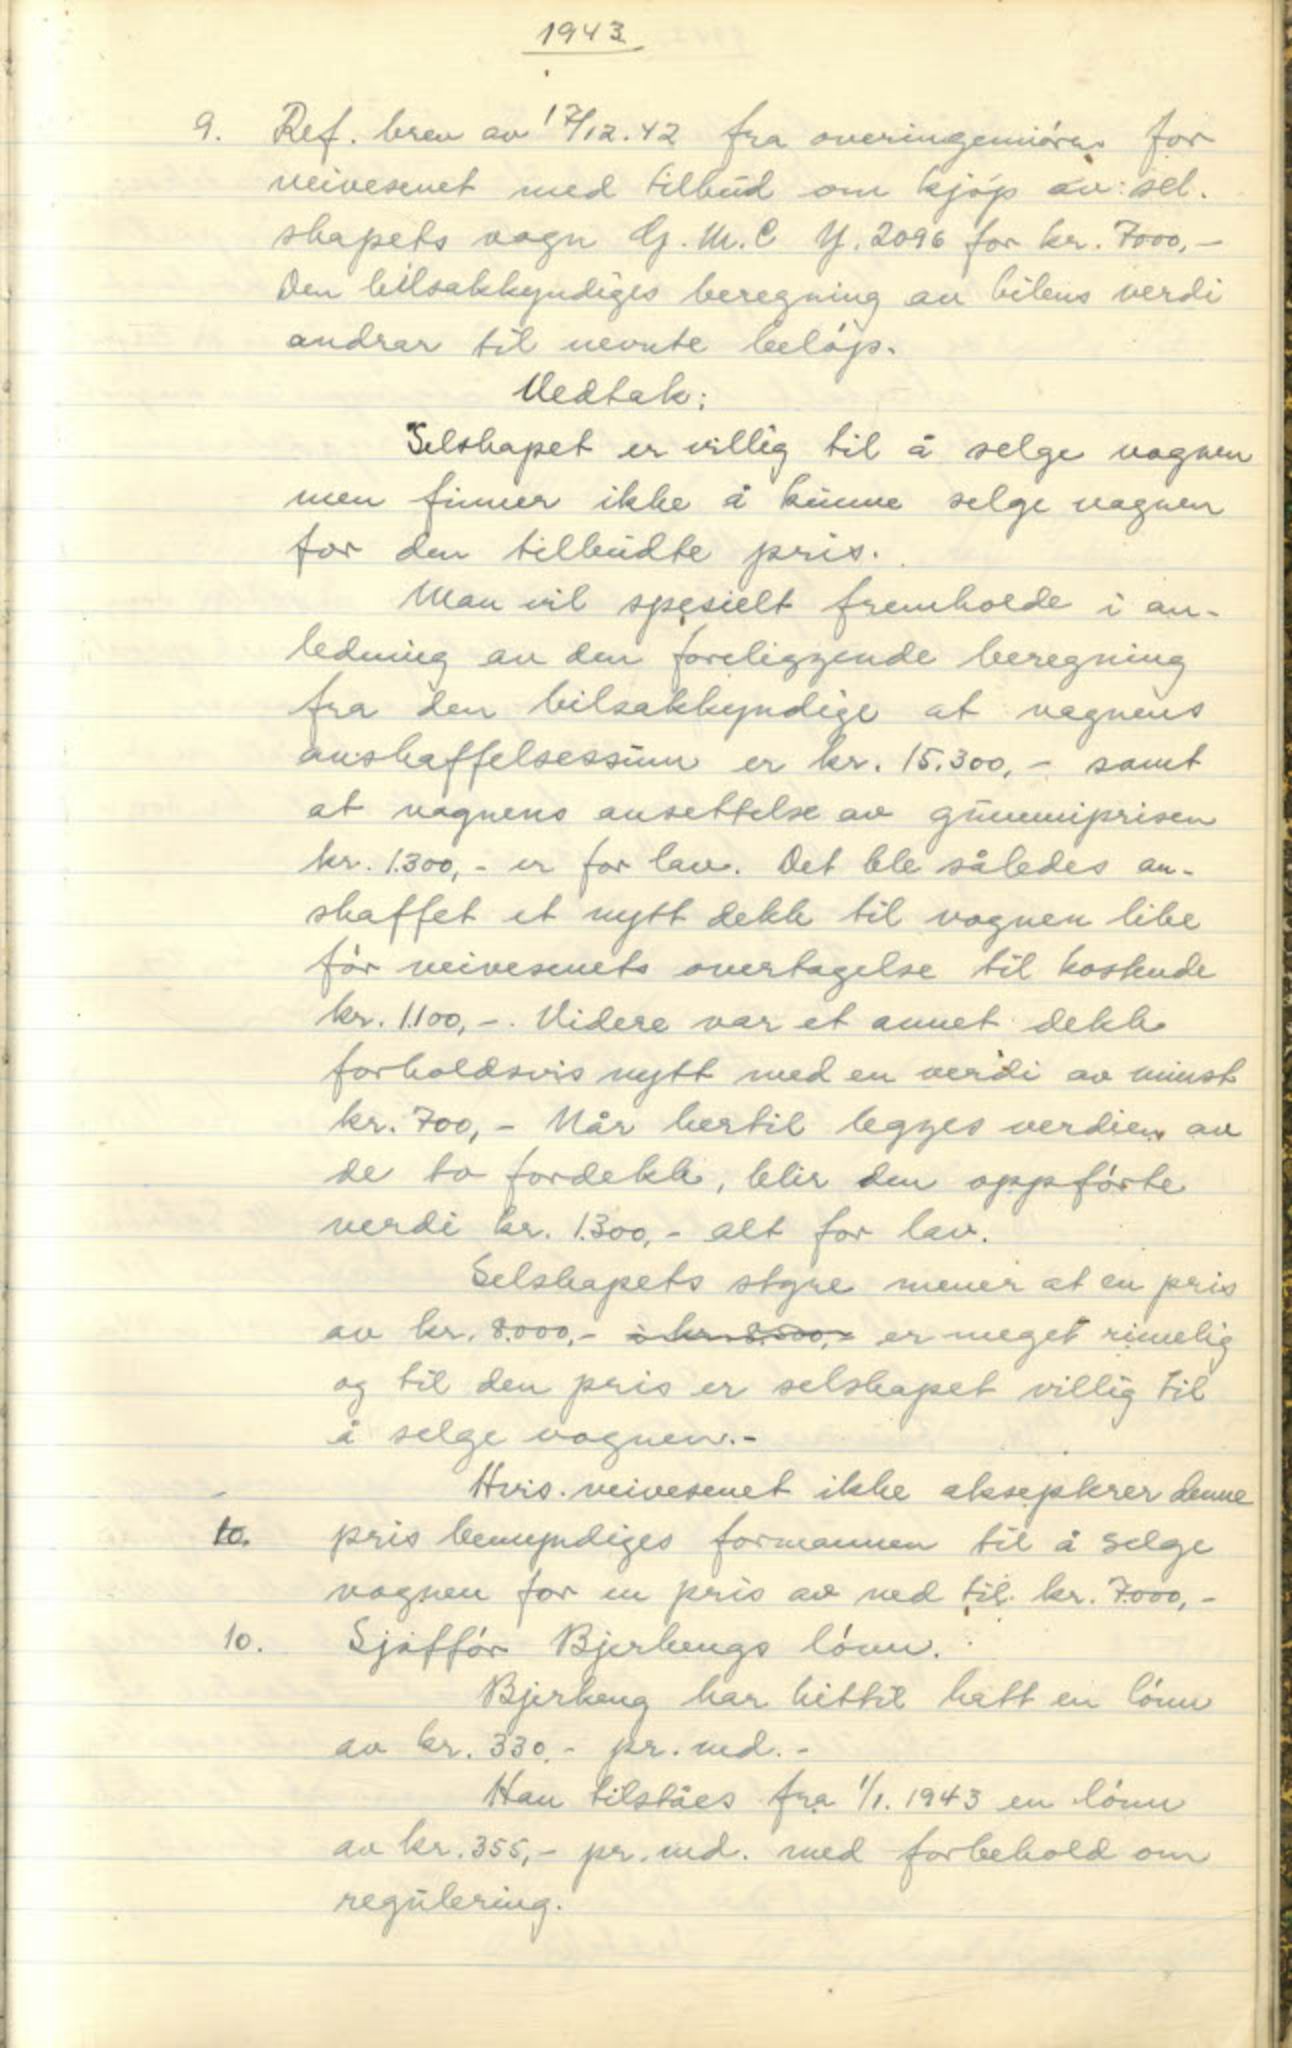 1943
9. Ref. brev av 17/12.42 fra overingeniören for
veivesenet med tilbud om kjöp av: sel-
skapets vogn G.M.C Y.2096 for kr. 7000,-
Den bilsakkyndiges beregning av bilens verdi
andrar til nevnte belöp.
Vedtak:
Selskapet er villig til å selge vognen
men finner ikke å kunne selge vognen
for den tilbudte pris.
Man vil spesielt fremholde i an-
ledning av den foreliggende beregning
fra den bilsakkyndige at vognens
anskaffelsessum er kr. 15.300,- samt
at vognens ansettelse av gummiprisen
kr. 1.300,- er for lav. Det ble således an-
skaffet et nytt dekk til vognen like
för veivesenets overtagelse til kostende
kr. 1.100,-. Videre var et annet dekk
forholdsvis nytt med en verdi av minst
kr. 700,- Når hertil legges verdien av
de to fordekk, blir den oppförte
verdi kr. 1.300,- alt for lav.
Selskapets styre mener at en pris
av kr. 8.000,- à kr. 8.500,- er meget rimelig
og til den pris er selskapet villig til
å selge vognen.-
Hvis veivesenet ikke aksepterer denne
10. pris bemyndiges formannen til å selge
vognen for en pris av ned til kr. 7.000,-
10. Sjåfför Bjerkengs lönn.
Bjerkeng har hittil hatt en lönn
av kr. 330,- pr. md.-
Han tilståes fra 1/1. 1943 en lönn
av kr. 355,- pr. md. med forbehold om
regulering.